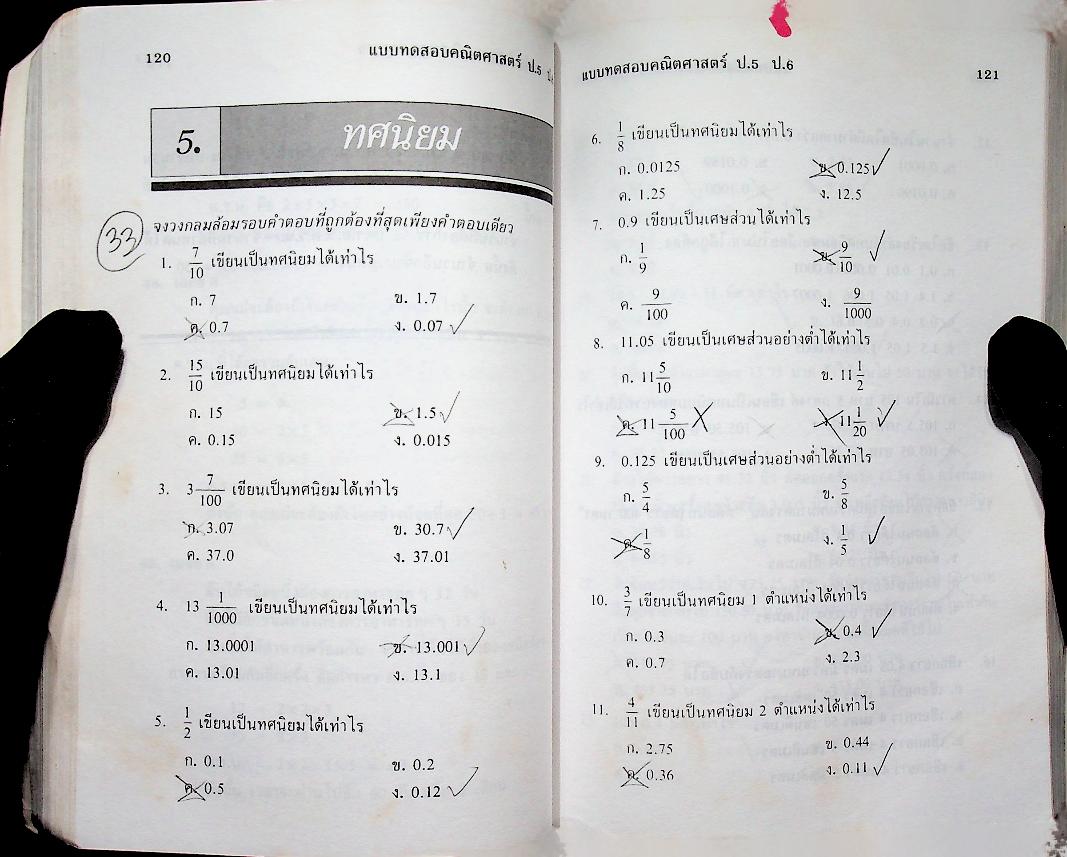 120
แบบทดสอบคณิตศาสตร์ ป.5
5. ทศนิยม
33
จงวงกลมล้อมรอบคำตอบที่ถูกต้องที่สุดเพียงคำตอบเดียว
1. 7/10 เขียนเป็นทศนิยมได้เท่าไร
ก. 7 ข. 1.7
ค. 0.7 ง. 0.07
2. 15/10 เขียนเป็นทศนิยมได้เท่าไร
ก. 15 ข. 1.5
ค. 0.15 ง. 0.015
3. 3 7/100 เขียนเป็นทศนิยมได้เท่าไร
ก. 3.07 ข. 30.7
ค. 37.0 ง. 37.01
4. 13 1/1000 เขียนเป็นทศนิยมได้เท่าไร
ก. 13.0001 ข. 13.001
ค. 13.01 ง. 13.1
5. 1/2 เขียนเป็นทศนิยมได้เท่าไร
ก. 0.1 ข. 0.2
ค. 0.5 ง. 0.12
แบบทดสอบคณิตศาสตร์ ป.5 ป.6
121
6. 1/8 เขียนเป็นทศนิยมได้เท่าไร
ก. 0.0125 ข. 0.125
ค. 1.25 ง. 12.5
7. 0.9 เขียนเป็นเศษส่วนได้เท่าไร
ก. 1/9 ข. 9/10
ค. 9/100 ง. 9/1000
8. 11.05 เขียนเป็นเศษส่วนอย่างต่ำได้เท่าไร
ก. 11 5/10 ข. 11 1/2
ค. 11 5/100 ง. 11 1/20
9. 0.125 เขียนเป็นเศษส่วนอย่างต่ำได้เท่าไร
ก. 5/4 ข. 5/8
ค. 1/8 ง. 1/5
10. 3/7 เขียนเป็นทศนิยม 1 ตำแหน่งได้เท่าไร
ก. 0.3 ข. 0.4
ค. 0.7 ง. 2.3
11. 4/11 เขียนเป็นทศนิยม 2 ตำแหน่งได้เท่าไร
ก. 2.75 ข. 0.44
ค. 0.36 ง. 0.11